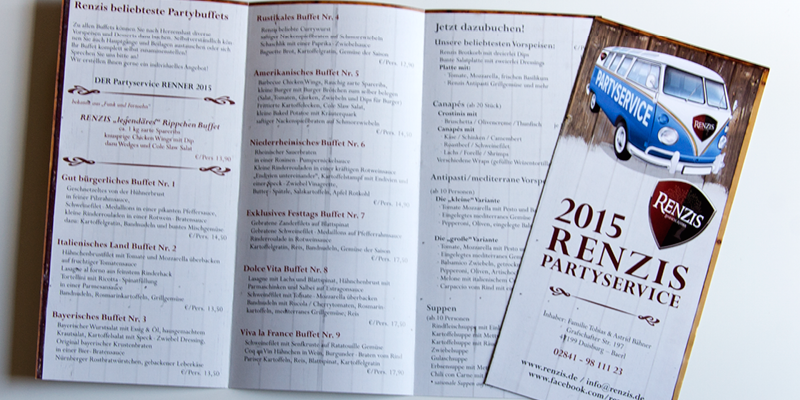 Renzis beliebteste Partybuffets
Zu allen Buffets können Sie nach Herzenslust diverse
Vorspeisen und Desserts dazu buchen. Selbstverständlich können
Sie auch Hauptgänge und Beilagen austauschen oder sich
Ihr Buffet komplett selbst zusammenstellen!
Sprechen Sie uns bitte an!
Wir erstellen Ihnen gerne ein individuelles Angebot!
DER Partyservice RENNER 2015
bekannt aus „Funk und Fernsehn“
RENZIS „legendäres“ Rippchen Buffet
ca. 1 kg zarte Spareribs
knusprige Chicken Wings mit Dip
dazu Wedges und Cole Slaw Salat
€/Pers. 13,90
Gut bürgerliches Buffet Nr. 1
Geschnetzeltes von der Hühnerbrust
in feiner Pilzrahmsauce,
Schweinefilet - Medaillons in einer pikanten Pfeffersauce,
kleine Rinderrouladen in einer Rotwein - Bratensauce
dazu: Kartoffelgratin, Bandnudeln und buntes Mischgemüse
€/Pers. 14,50
Italienisches Land Buffet Nr. 2
Hähnchenbrustfilet mit Tomate und Mozzarella überbacken
auf fruchtiger Tomatensauce
Lasagne al forno aus feinstem Rinderhack
Tortellini mit Ricotta - Spinatfüllung
in einer Parmesansauce
Bandnudeln, Rosmarinkartoffeln, Grillgemüse
€/Pers. 13,50
Bayerisches Buffet Nr. 3
Bayerischer Wurstsalat mit Essig & Öl, hausgemachtem
Krautsalat, Kartoffelsalat mit Speck - Zwiebel Dressing,
Original bayerischer Krustenbraten
in einer Bier- Bratensauce
Nürnberger Rostbratwürstchen, gebackener Leberkäse
€/Pers. 13,50
Rustikales Buffet Nr. 4
Renzis beliebte Currywurst
saftiger Nackenspießbraten auf Schmorzwiebeln
Schaschlik mit einer Paprika / Zwiebelsauce
Baguette Brot, Kartoffelgratin, Gemüse der Saison
€/Pers.
Amerikanisches Buffet Nr. 5
Barbecue ChickenWings, Rauchig zarte Spareribs,
kleine Burger mit Burger Brötchen zum selber belegen
(Salat, Tomaten, Gurken, Zwiebeln und Dips für Burger)
Frittierte Kartoffelecken, Cole Slaw Salat,
kleine Baked Potato mit Kräuterquark
saftiger Nackenspießbraten auf Schmorzwiebeln
€/Pers. 14,50
Niederrheinisches Buffet Nr. 6
Rheinischer Sauerbraten
in einer Rosinen - Pumpernickelsauce
Kleine Rinderrouladen in einer kräftigen Rotweinsauce,
„Endivien untereinander“, Kartoffelstampf mit Endivien und
einer Speck - Zwiebel Vinaigrette,
Butter - Spätzle, Salzkartoffeln, Apfel Rotkohl
€/Pers.
Exklusives Festtags Buffet Nr. 7
Gebratene Zanderfilets auf Blattspinat
Gebratene Schweinefilet - Medaillons auf Pfefferrahmsauce
Rinderroulade in Rotweinsauce
Kartoffelgratin, Reis, Bandnudeln, Gemüse der Saison
€/Pers.
Dolce Vita Buffet Nr. 8
Lasagne mit Lachs und Blattspinat, Hähnchenbrust mit
Parmaschinken und Salbei auf Estragonsauce
Schweinefilet mit Tomate - Mozzarella überbacken
Bandnudeln mit Rucola / Cherrytomaten, Rosmarin-
kartoffeln, mediterranes Grillgemüse, Reis
€/Pers.
Viva la France Buffet Nr. 9
Schweinefilet mit Senfkruste auf Ratatouille Gemüse
Coq au Vin Hähnchen in Wein, Burgunder - Braten vom Rind
Pariser Kartoffeln, Reis, Blattspinat, Kartoffelgratin
€/Pers. 17,90
Jetzt dazubuchen!
Unsere beliebtesten Vorspeisen:
Rustikale
Bunte Salatplatte mit zweierlei Dressings
Platte mit:
Tomate, Mozzarella, frischen Basilikum
Renzis Antipasti Grillgemüse und mehr
Canapés (ab 20 Stück)
Crostinis mit
Bruschetta / Olivencreme / Thunfisch
Canapés mit
Käse / Schinken / Camembert
Roastbeef / Schweinefilet
Lachs / Forelle / Shrimps
Verschiedene Wraps (gefüllte Weizentortillas)
Antipasti/mediterrane Vorspeisen
(ab 10 Personen)
Die „kleine“ Variante
Tomate Mozzarella mit Pesto und
Eingelegtes mediterranes Gemüse
Peperoni, Oliven, Artischocken
gefüllt, eingelegt
Die „große“ Variante
Tomate, Mozzarella mit Pesto und
Eingelegtes mediterranes
Balsamico Zwiebeln, getrocknete
Peperoni, Oliven, Artischocken
Melone mit italienischem
Carpaccio vom Rind mit
Suppen
(ab 10 Personen)
Rindfleischsuppe mit
Kartoffelsuppe mit
Kartoffelsuppe mit
Tomatensuppe
Zwiebelsuppe
Gulaschsuppe
Erbsensuppe mit
Chili con Carne mit
PARTYSERVICE
RENZIS
RENZIS
2015
RENZIS
PARTYSERVICE
Inhaber: Familie Tobias & Astrid Bühner
Grafschafter Str. 197
47199 Duisburg - Baerl
02841 - 98 111 23
www.renzis.de / info@renzis.de